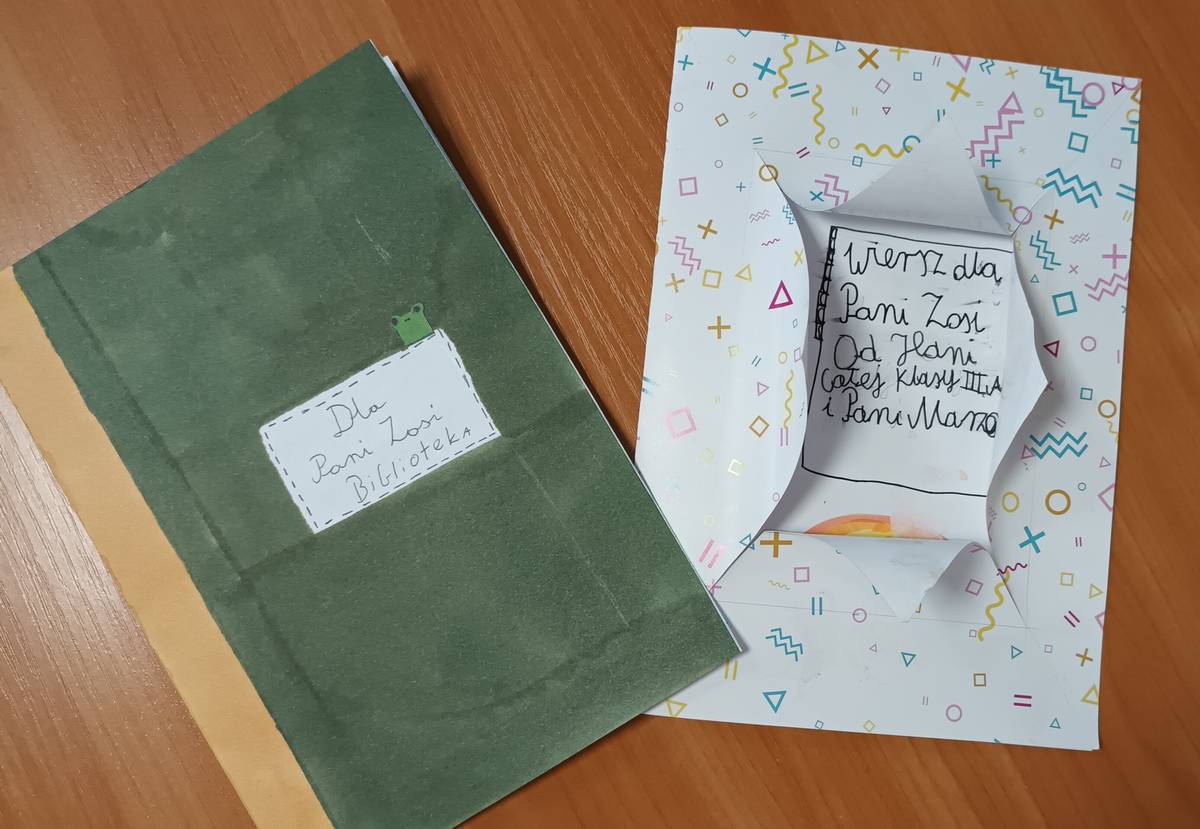 Dla
Pani Zosi
BiblioteKA
Wiersz dla
Pani Zosi
Od Hani
Całej Klasy III A
i Pani Marze